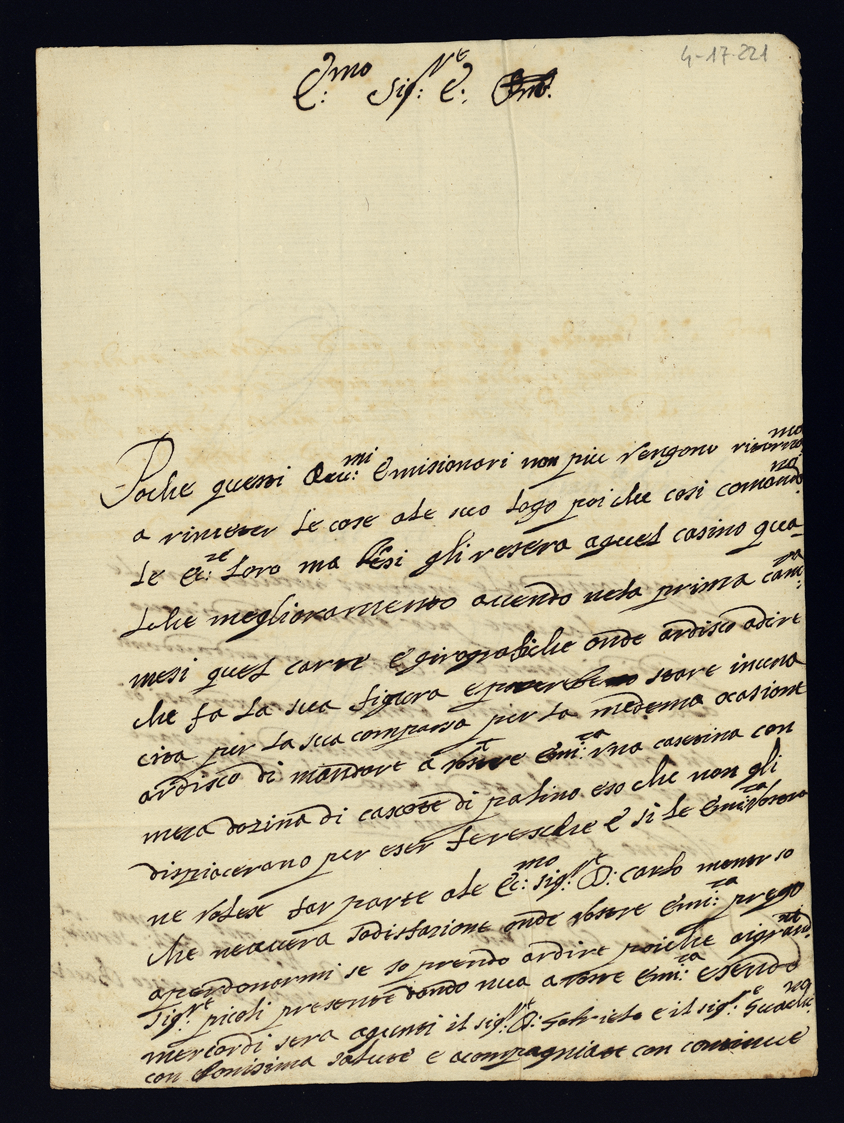 4-17-221
E:mo Sig:re E:
Poche questi Reu:mi Emisionari non piu vengono
a rimeter le cose ale suo logo poi che cosi comandono
le Ec:ze loro ma lesi gli resera aquel casino qua-
lche meglioramento avendo nela prima cam:ra
mesi quel carte e girografiche onde ardisco adire
che fa la sua figura e stare in una
cita per la sua comparsa per la medema ocasione
ardisco di mandare a Emi:za vna casetina con
meza dozina di casote di patino eso che non gli
dispiacerano per eser fresche e si le Emi:za vostra
ne volese far parte ale Ec:mo sig:re D: carlo
che neavera sodisfazione onde vostre Emi:za prego
aperdonarmi se so prendo ardire poiche aigrandi
sig:re picoli presente dando nua a vostre Emi:za esendo
mercordi sera agunti il sig:re D: Gabriele e il sig:re
con bonisima salute e acompagniate con continue